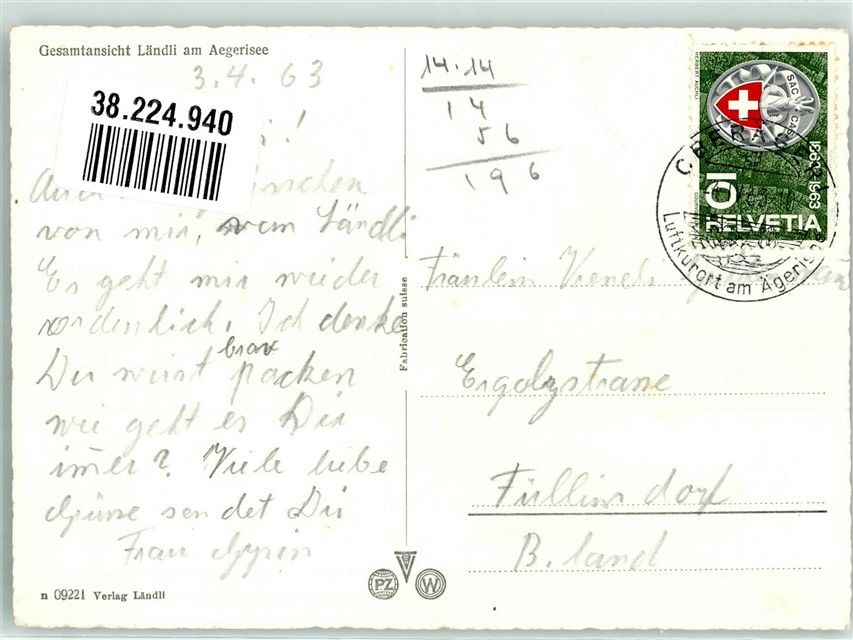 Gesamtansicht Ländli am Aegerisee
3.4.63
38.224.940
von mir, vom Ländli
Es geht mir wieder
ordenlich. Ich denke
Du wirst brav packen
wie geht es Dir
immer? Viele liebe
Grüsse sendet Dir
Frau
n 09221 Verlag Ländli
Fabrication suisse
14.14
14
56
196
HELVETIA
10
1863 1963
SAC
CAS
Luftkurort am Ägerisee
Fräulein
Ergolzstrasse
Füllinsdorf
B. land
PZ
W